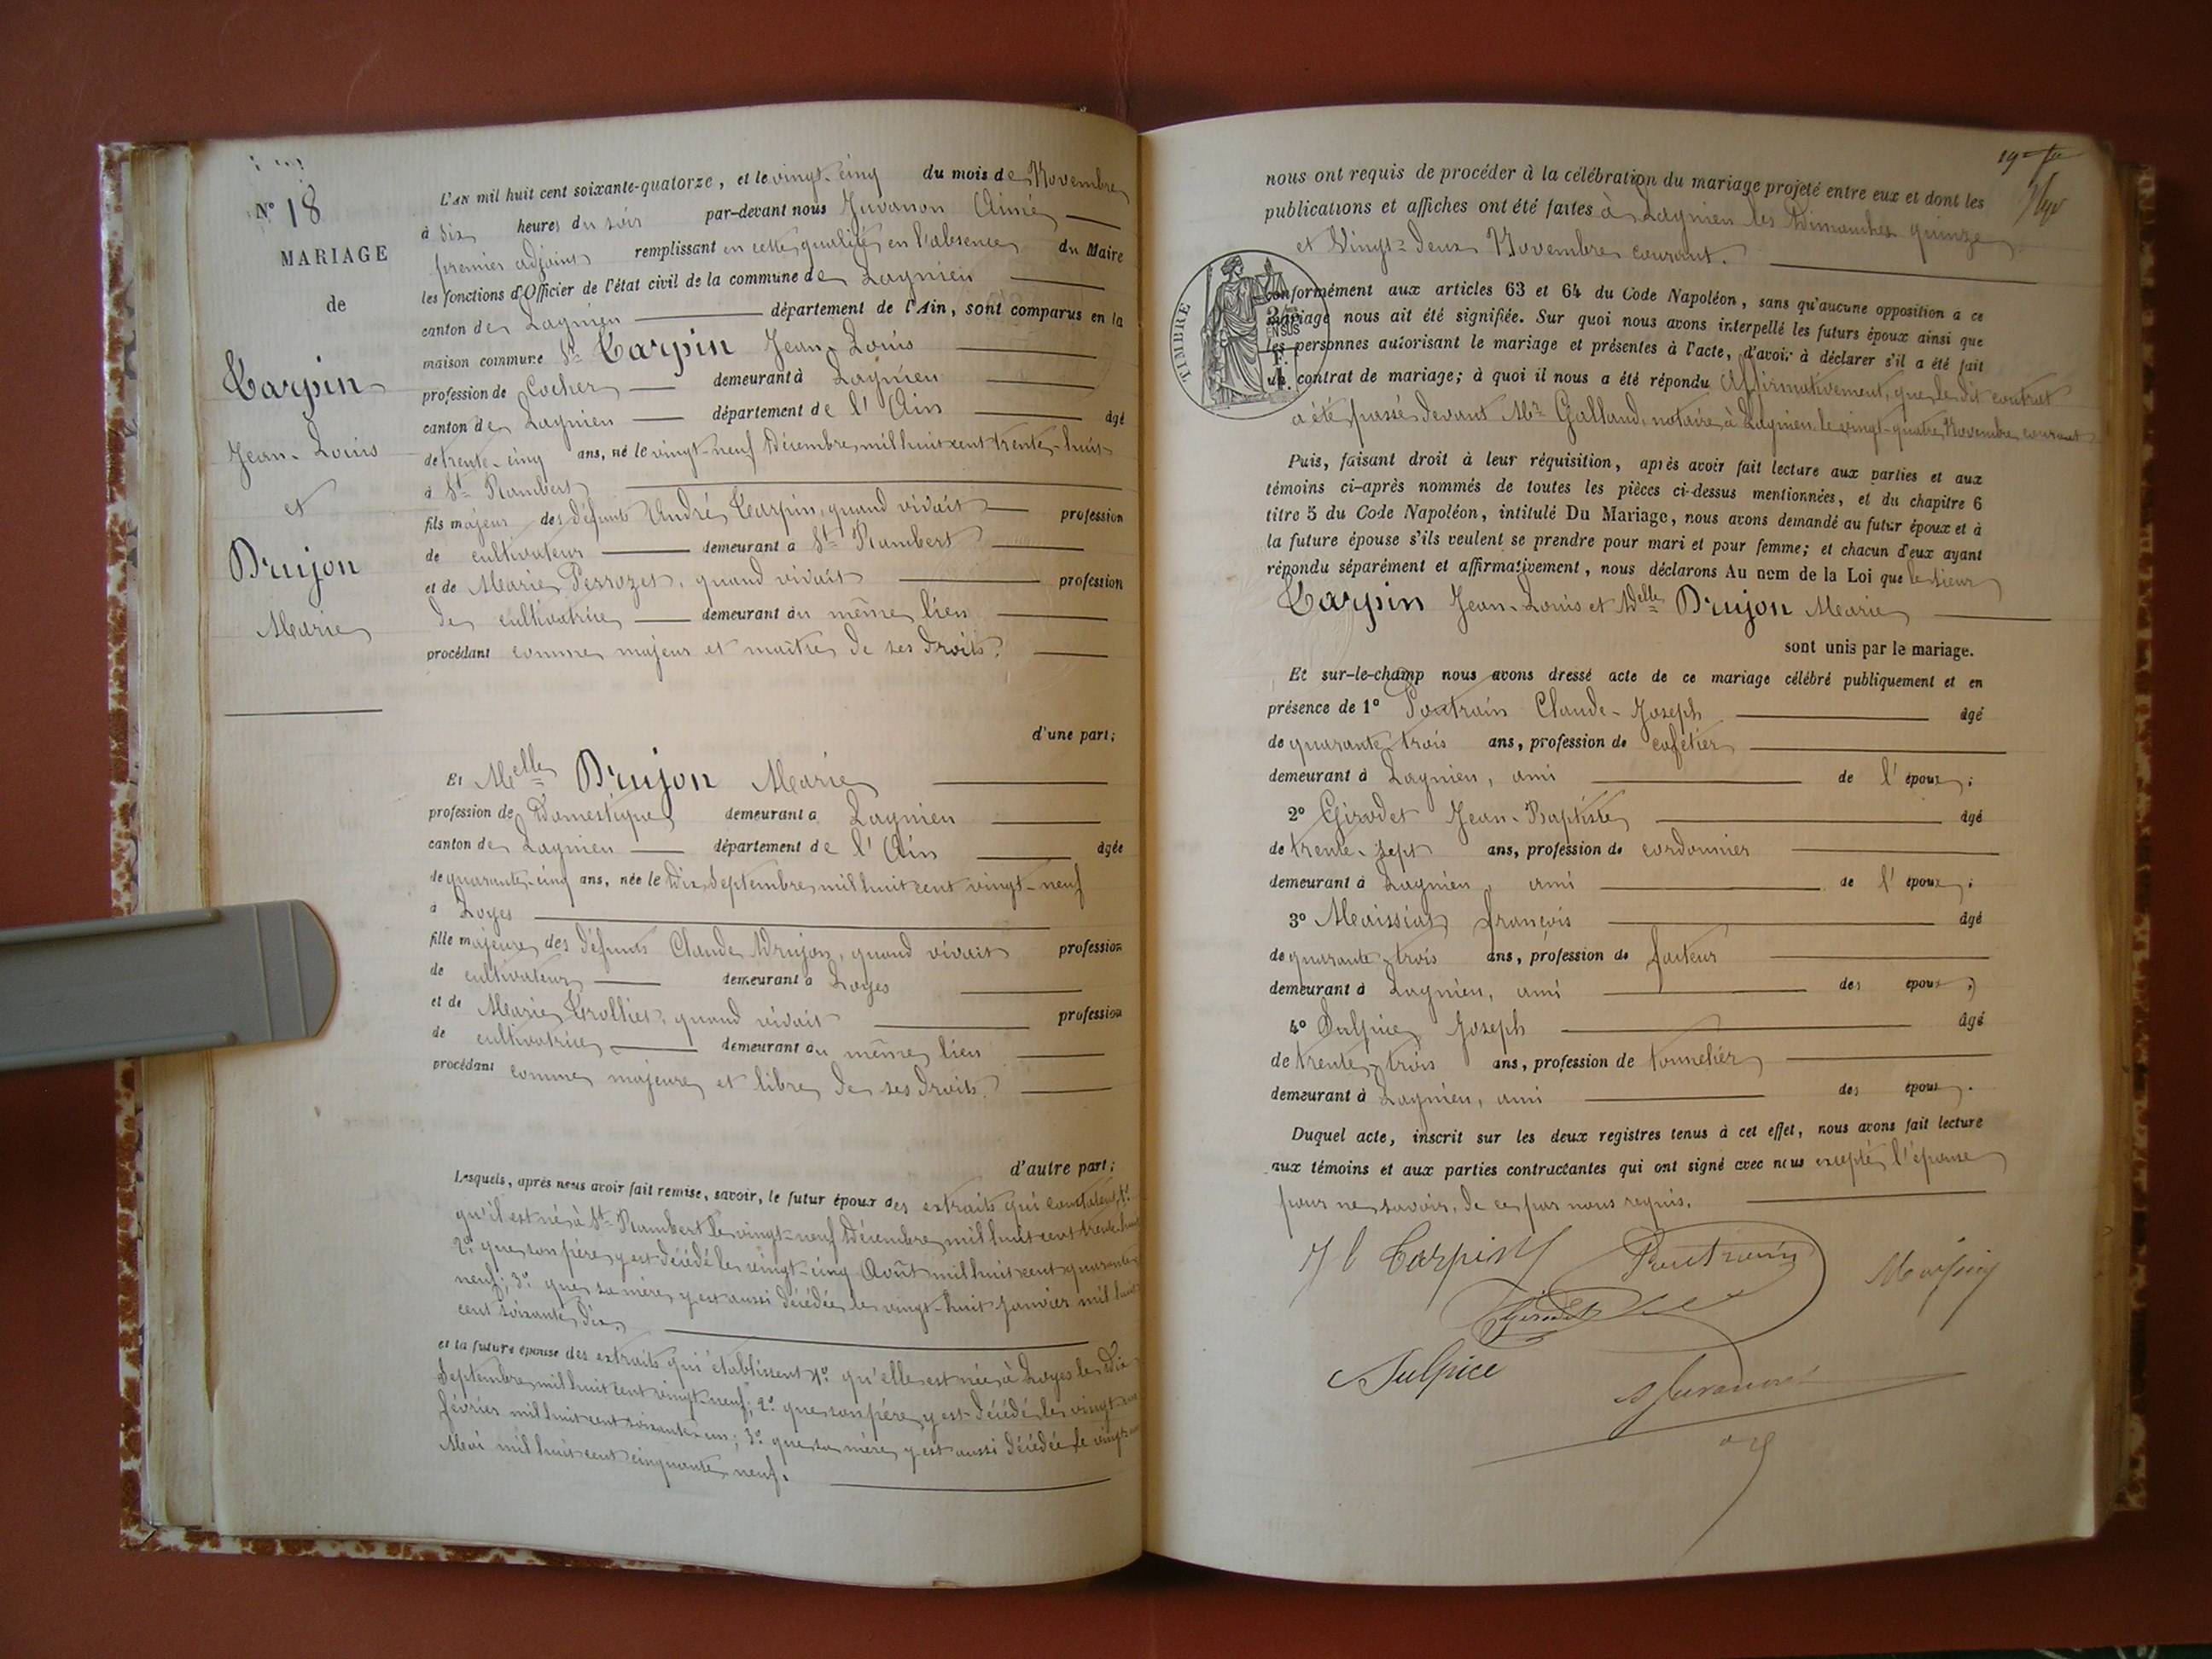 N° 18
MARIAGE
de
Carpin
Jean-Louis
et
Drujon
Marie
L'AN mil huit cent soixante-quatorze, et le vingt-cinq du mois de Novembre
à six heures du soir par-devant nous Juvanon Aimé
premier adjoint remplissant en cette qualité, en l'absence du Maire
les fonctions d'Officier de l'état civil de la commune de Lagnieu
canton de Lagnieu département de l'Ain, sont comparus en la
maison commune Sr Carpin Jean-Louis
profession de Cocher demeurant à Lagnieu
canton de Lagnieu département de l'Ain âgé
de trente-cinq ans, né le vingt-neuf Décembre mil huit cent trente-huit
à St Rambert
fils majeur des défunts André Carpin, quand vivait profession
de cultivateur demeurant à St Rambert
et de Marie Perrozet, quand vivait profession
de cultivatrice demeurant au même lieu
procédant comme majeur et maître de ses droits.
d'une part;
Et Melle Drujon Marie
profession de Domestique demeurant à Lagnieu
canton de Lagnieu département de l'Ain âgée
de quarante-cinq ans, née le Dix Septembre mil huit cent vingt-neuf
à Loyes
fille majeure des défunts Claude Drujon, quand vivait profession
de cultivateur demeurant à Loyes
et de Marie Trollier, quand vivait profession
de cultivatrice demeurant au même lieu
procédant comme majeure et libre de ses droits.
d'autre part;
Lesquels, après nous avoir fait remise, savoir, le futur époux des extraits qui constatent 1°
qu'il est né à St Rambert le vingt-neuf Décembre mil huit cent trente-huit
2° que son père y est décédé le vingt-cinq Août mil huit cent quarante
neuf; 3° que sa mère y est aussi décédée le vingt-huit Janvier mil huit
cent soixante dix.
et la future épouse des extraits qui établissent 1° qu'elle est née à Loyes le Dix
Septembre mil huit cent vingt-neuf; 2° que son père y est décédé le vingt
février mil huit cent soixante-un; 3° que sa mère y est aussi décédée le vingt
Mai mil huit cent cinquante neuf.
nous ont requis de procéder à la célébration du mariage projeté entre eux et dont les
publications et affiches ont été faites à Lagnieu les Dimanches quinze
et Vingt-Deux Novembre courant.
TIMBRE
EN SUS
conformément aux articles 63 et 64 du Code Napoléon, sans qu'aucune opposition a ce
mariage nous ait été signifiée. Sur quoi nous avons interpellé les futurs époux ainsi que
les personnes autorisant le mariage et présentes à l'acte, d'avoir à déclarer s'il a été fait
un contrat de mariage; à quoi il nous a été répondu Affirmativement, que le dit contrat
a été passé devant Mr Galland, notaire à Lagnieu, le vingt-quatre Novembre courant
Puis, faisant droit à leur réquisition, après avoir fait lecture aux parties et aux
témoins ci-après nommés de toutes les pièces ci-dessus mentionnées, et du chapitre 6
titre 5 du Code Napoléon, intitulé Du Mariage, nous avons demandé au futur époux et à
la future épouse s'ils veulent se prendre pour mari et pour femme; et chacun d'eux ayant
répondu séparément et affirmativement, nous déclarons Au nom de la Loi que le sieur
Carpin Jean-Louis et Delle Drujon Marie
sont unis par le mariage.
Et sur-le-champ nous avons dressé acte de ce mariage célébré publiquement et en
présence de 1° Poutrain Claude-Joseph âgé
de quarante-trois ans, profession de cafetier
demeurant à Lagnieu, ami de l'époux;
2° Girodet Jean-Baptiste âgé
de trente-sept ans, profession de cordonnier
demeurant à Lagnieu, ami de l'époux;
3° Maissiat françois âgé
de quarante-trois ans, profession de facteur
demeurant à Lagnieu, ami des époux;
4° Sulpice Joseph âgé
de trente-trois ans, profession de tonnelier
demeurant à Lagnieu, ami des époux.
Duquel acte, inscrit sur les deux registres tenus à cet effet, nous avons fait lecture
aux témoins et aux parties contractantes qui ont signé avec nous excepté l'épouse
pour ne savoir, de ce par nous requis.
J l Carpin Poutrain
Girodet
Sulpice
A Juvanon